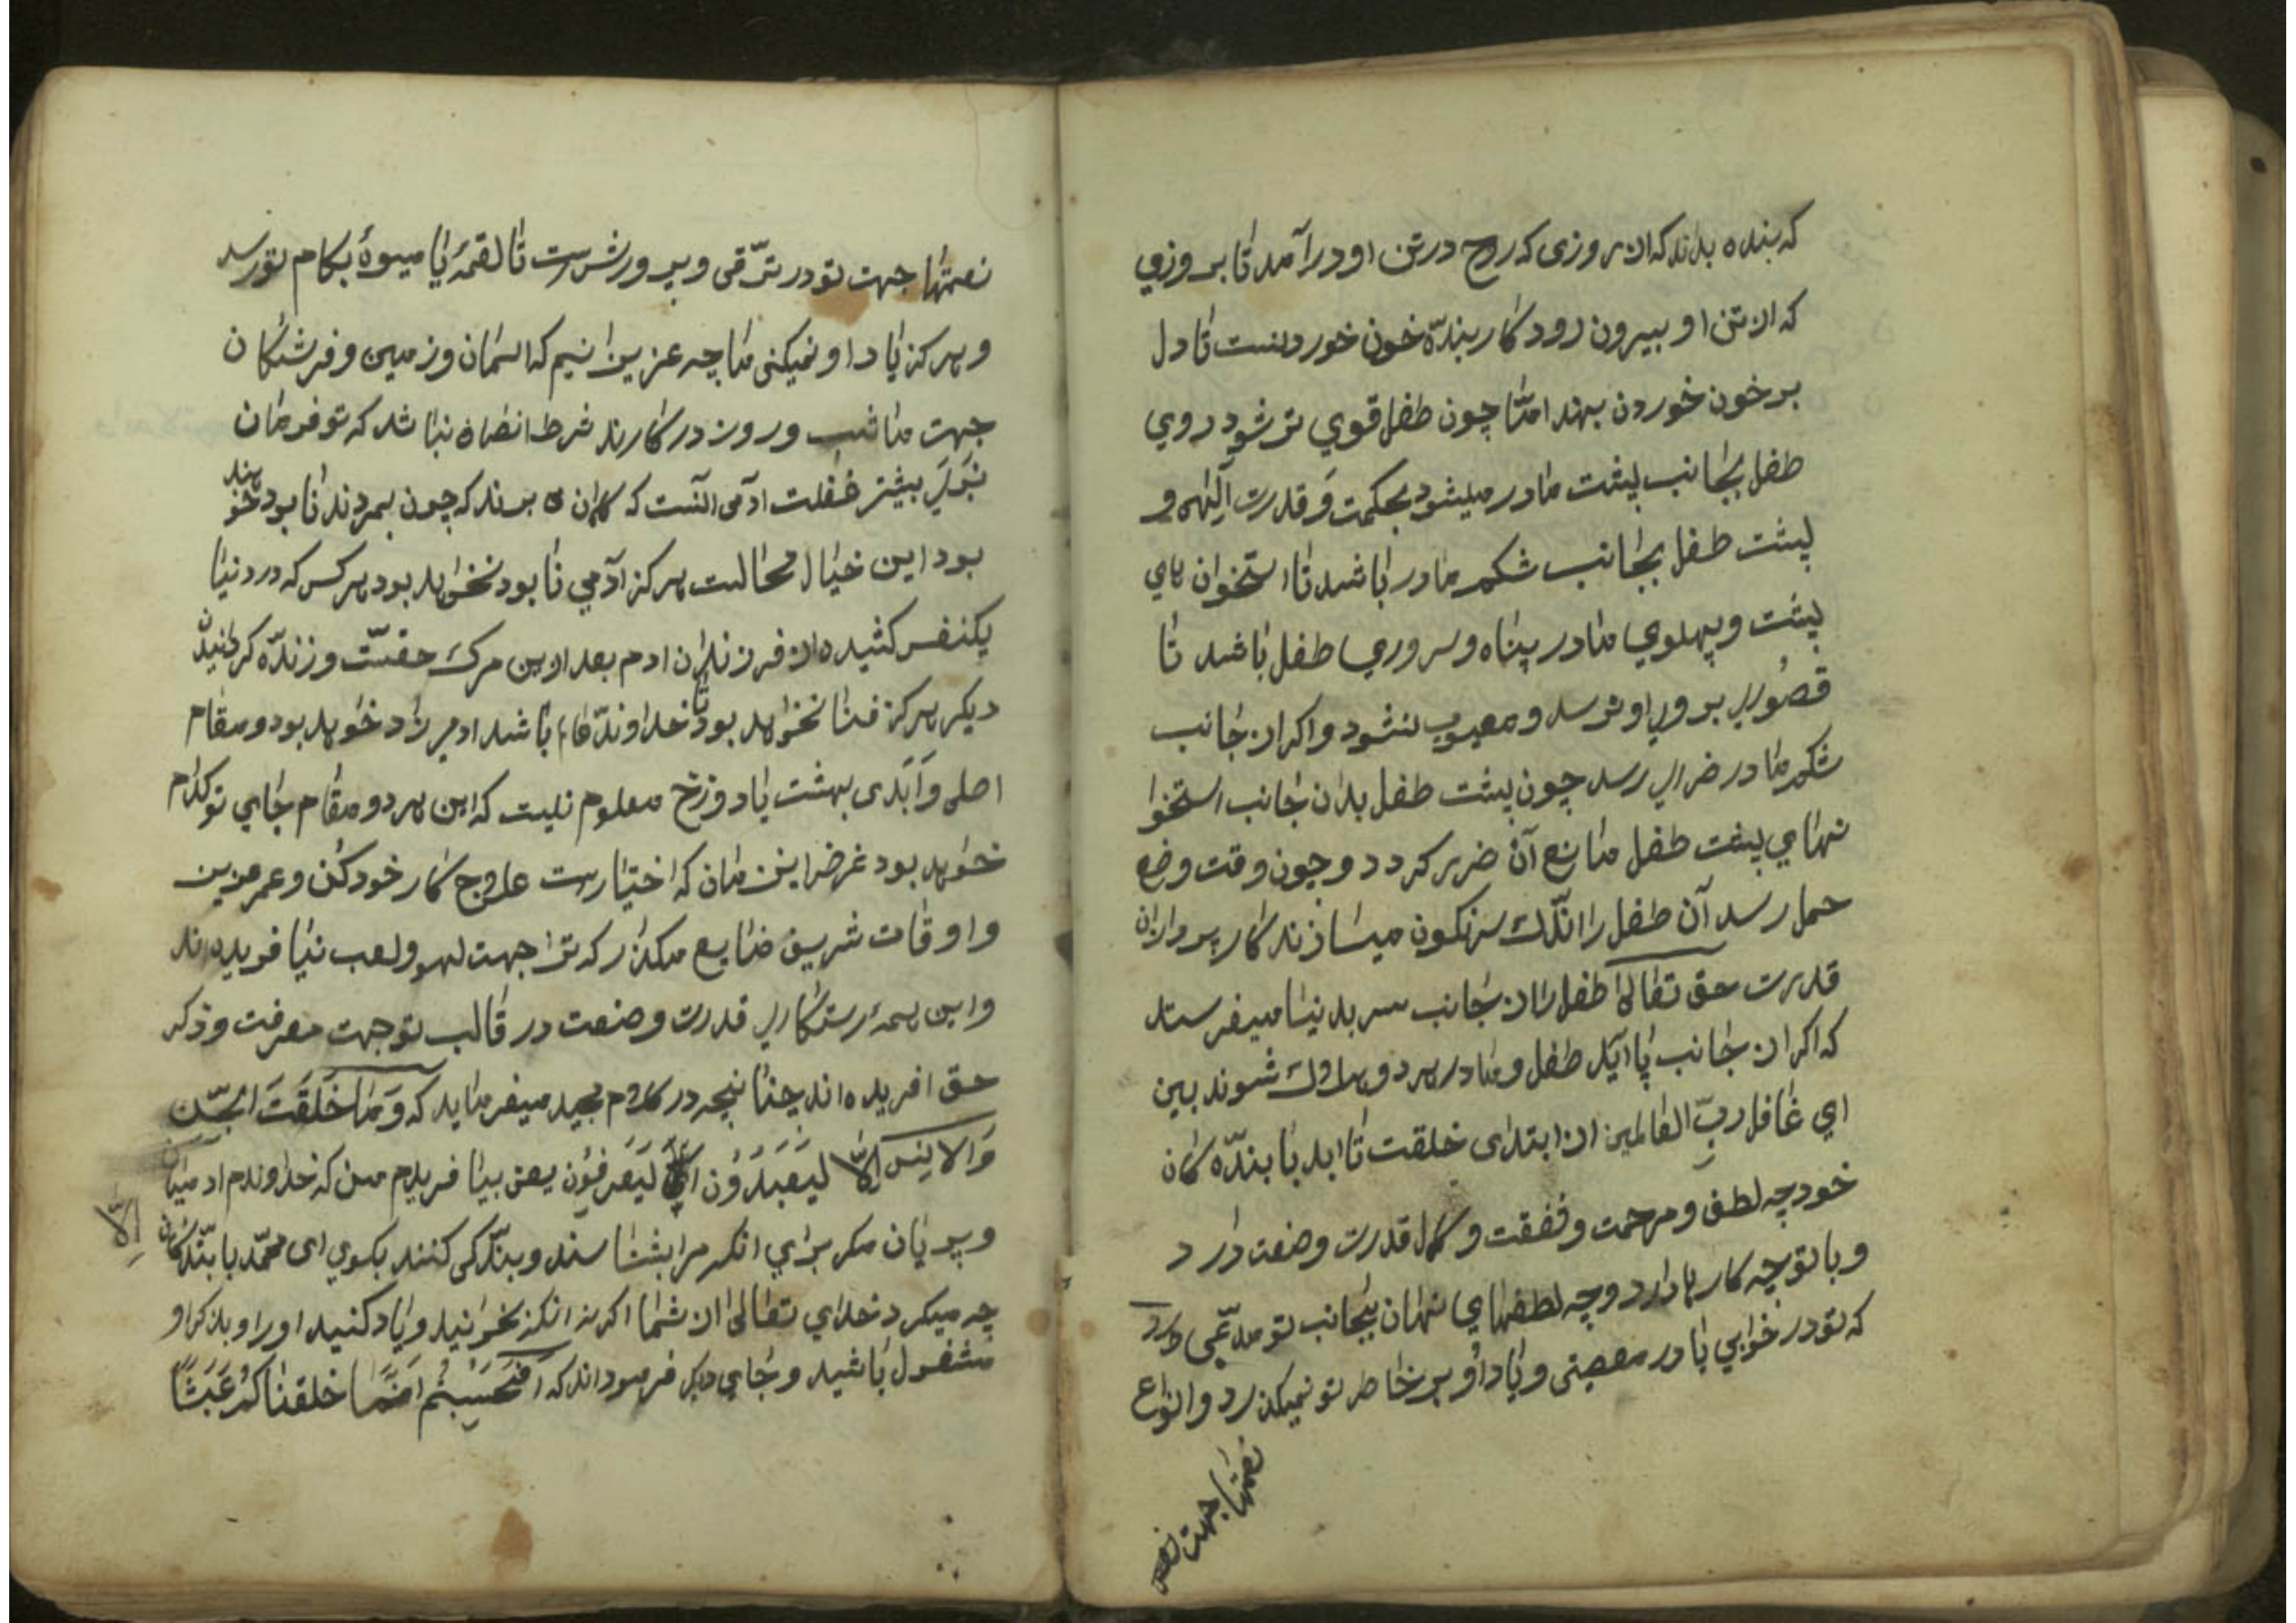 که بنده بداند که از روزی که روح در تن او درآمد تا بروزی
که از تن او بیرون رود کار بندّه خون خوردنست تا دل
بر خون خوردن بهند امّا چون طفل قوی تر شود روی
طفل بجانب پشت مادر میشود بحکمت وَ قدرت آلٓهی و
پشت طفل بجانب شکم مادر باشد تا استخوان های
پشت و پهلوی مادر پناه و سروری طفل باشد تا
قصوری بروی او نرسد و معیوب نشود و اکر از جانب
شکم مادر ضرری رسد چون پشت طفل بدان جانب استخوا
نهای پشت طفل مانع آن ضرر کردد و چون وقت وضع
حمل رسد آن طفل را اندّک سرنکون میسازند کار پردازان
قدرت حق تعالی طفل را از جانب سر بدنیا میفرستد
که اکر از جانب پا آید طفل و مادر هر دو هلاک شوند ببین
ای غافل ربّ العالمین از ابتدای خلقت تا ابد با بندّه کان
خود چه لطف و مرحمت و شفقت و کمال قدرت و صنعت دارد
و با تو چه کارها دارد و چه لطفهای نهان بجانب تو مدعّی دارد
که تو در خوابی یا در معصیتی و یاد او بر خاطر تو نمیکذرد و انواع
نعمتها جهت
نعمتها جهت تو در ترّقی و پرورش است تا لقمهٔ یا میوهٔ بکام تو رسد
و هرکز یاد او نمیکنی ما چه عزیزانیم که اسمان و زمین و فرشتکان
جهت ما شب و روز در کارند شرط انصاف نباشد که تو فرمان
نبری بیشتر غفلت ادمی آنست که کمان می برند که چون بمردند نابود خو
هند
بود این خیال محالست هرکز آدمی نابود نخواهد بود هر کس که در دنیا
یکنفس کشیده از فرزندان ادم بعد از این مرک حقسّت و زندّه کردنیدن
دیکر هرکز فنا نخواهد بود تا خداوندّی باشد ادمیزاد خواهد بود و مقام
اصلی وَ اَبَدی بهشت یا دوزخ معلوم نیست که این هر دو مقام جای تو کدام
خواهد بود غرض این زمان که اختیارست علاج کار خود کن و عمر عزیز
و اوقات شریف ضایع مکذار که ترا جهت لهو و لعب نیافریده اند
و این همهٔ دستکاری قدرت و صنعت در قالب تو جهت معرفت و ذکر
حق افریده اند چنانچه در کلام مجید میفرماید که وَمٰا خَلَقَتَ الجّن
وَالانِس اِلاّٰ لیَعَبَدَوُن ای لیَعَرِفوُن یعنی نیافریدم من که خداوندم ادمیان
اِلاّ
و پریان مکر برای انکه مرا بشناسند و بندّکی کنند بکوی ای محمّد با بندّکان
چه میکرد خدای تعالی از شما اکر نه انکه نخوانید و یاد کنید او را و بذکر او
مشغول باشید و جای دیکر فرموداند که اَفَحَسَبتُم اَنمَا خلقناکُم عَبَثًا